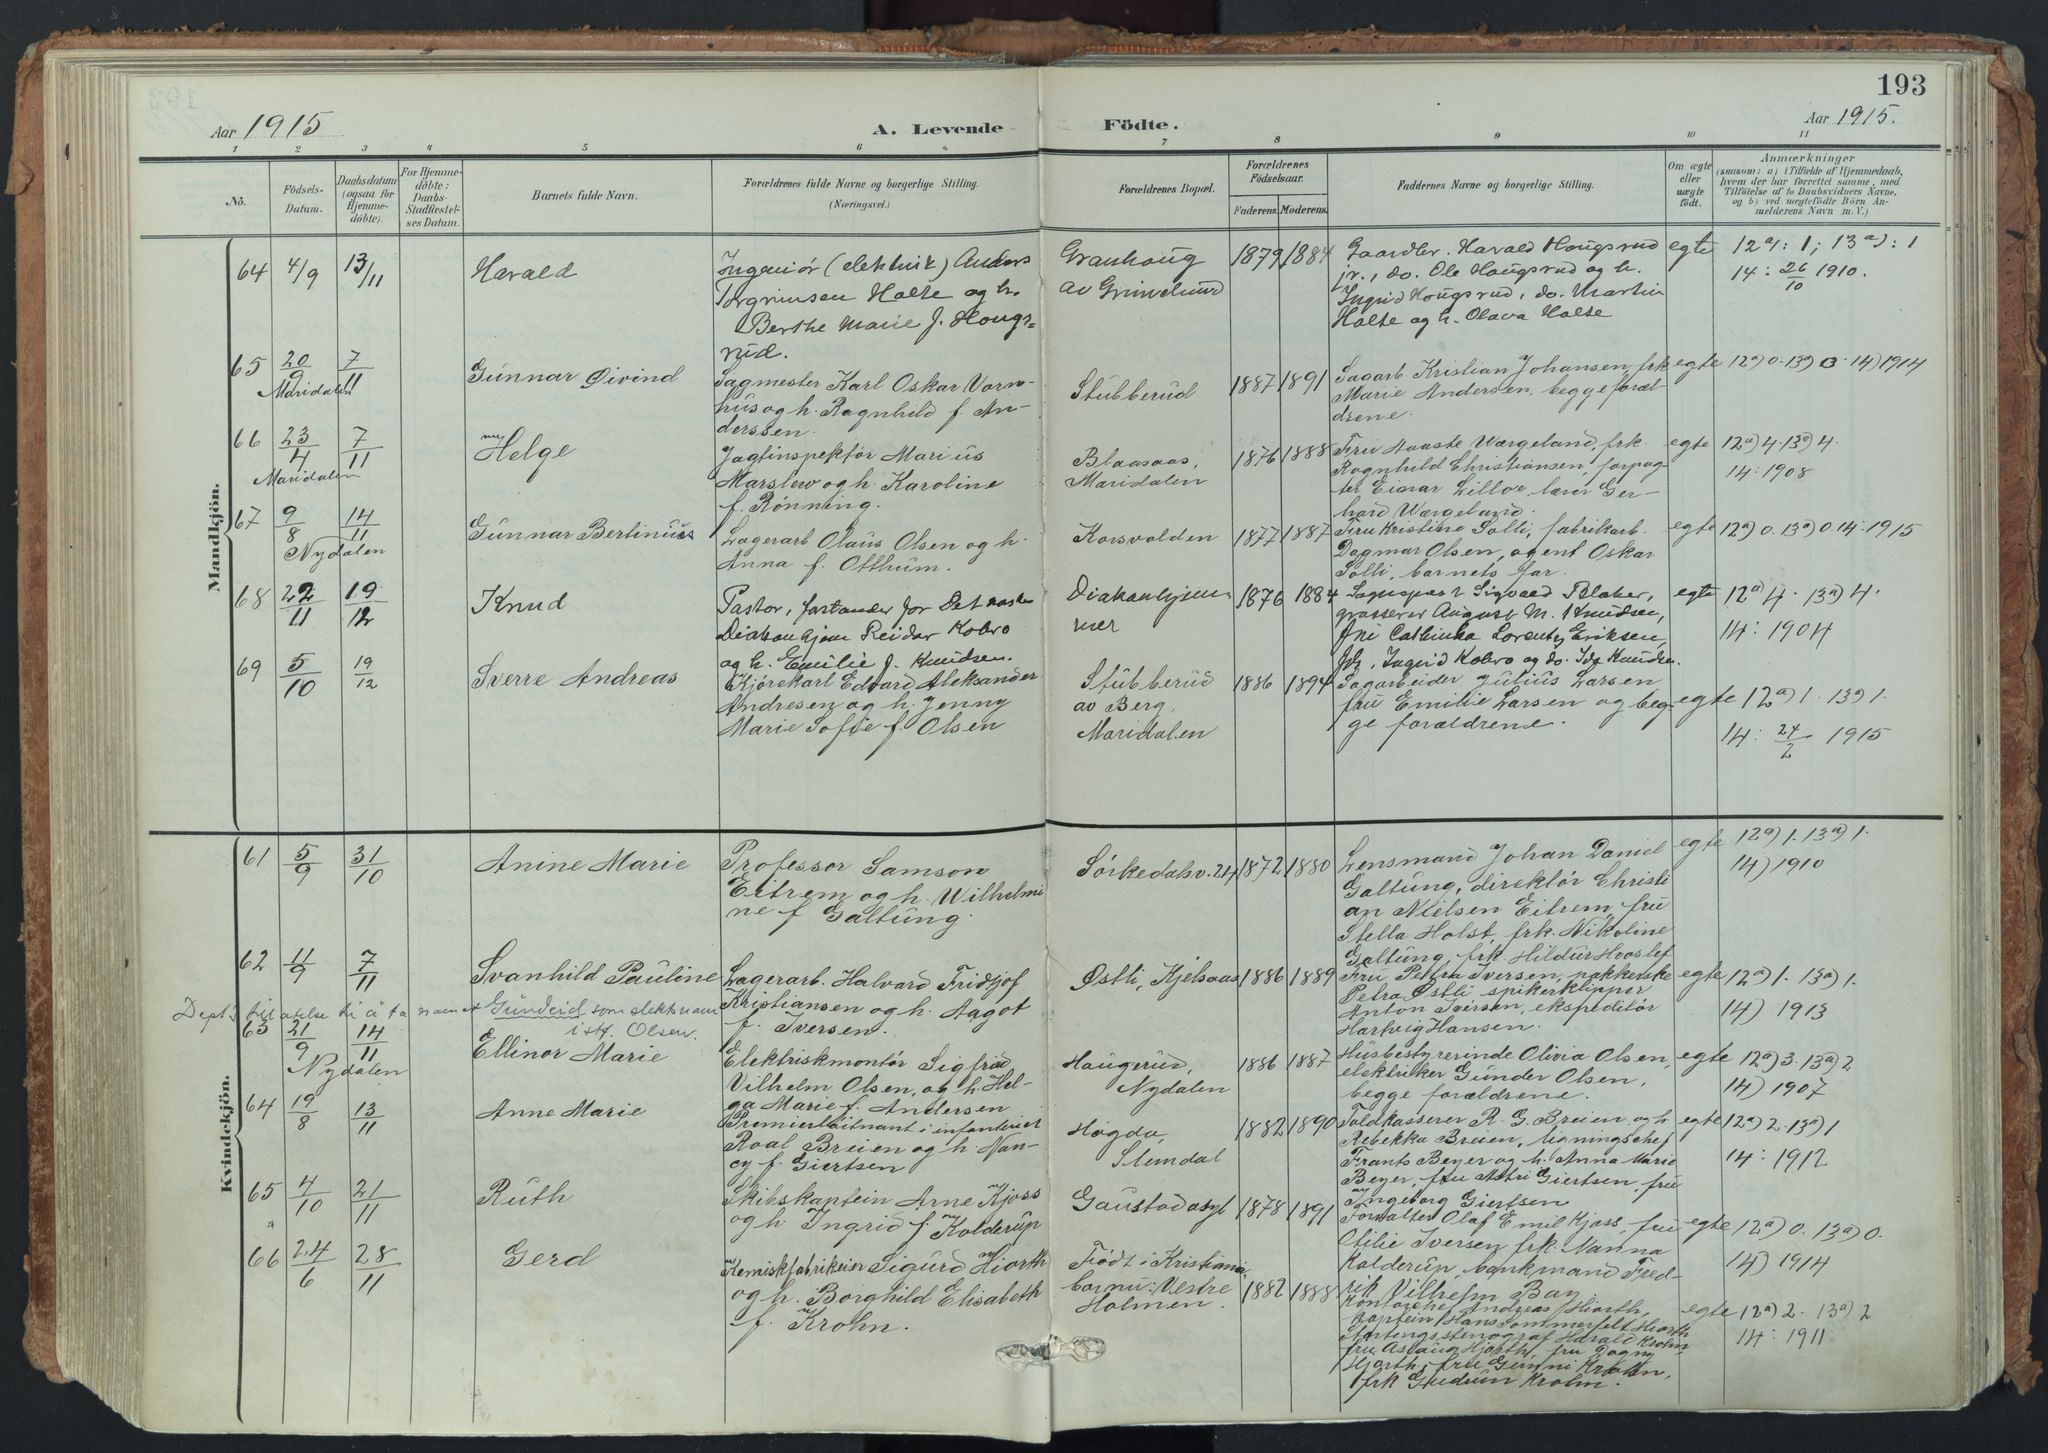 193
Aar 1915
A. Levende
Födte.
Aar 1915.
1 2 3 4 5 6 7 8 9 10 11
No.
Födsels-
Datum.
Daabsdatum
(ogsaa for
Hjemme-
döbte).
For Hjemme-
döbte:
Daabs-
Stadfæstel-
ses Datum.
Barnets fulde Navn.
Forældrenes fulde Navne og borgerlige Stilling.
(Næringsvei.)
Forældrenes Bopæl.
Forældrenes
Födselsaar.
Faderens.
Moderens.
Faddernes Navne og borgerlige Stilling.
Om ægte
eller
uægte
födt.
Anmærkninger
(saasom: a) i Tilfælde af Hjemmedaab,
hvem der har forrettet samme, med
Tilföielse af to Daabsvidners Navne,
og b) ved uægtefödte Börn An-
melderens Navn m. V.)
Mandkjön.
64 4/9 13/11 Harald
Ingeniør (elektrik) Anders
Torgrimsen Holte og h.
Berthe Marie f. Hougs-
rud.
Granhoug
av Grimelund
1879 1884
Gaardbr. Harald Hougsrud
jr., do. Ole Hougsrud og h.
Ingrid Hougsrud, do. Martin
Holte og h. Olava Holte
egte
12a): 1; 13a): 1
14: 26/10 1910.
65 20/9 7/11
Maridalen
Gunnar Øivind
Sagmester Karl Oskar Vorn-
hus og h. Ragnhild f. An-
derssen.
Stubberud
1887 1891
Sagarb Kristian Johansen, frk
Marie Andersen, begge foræl-
drene.
egte
12a) 0. 13a) 0. 14) 1914
66 23/4 7/11
Maridalen
Helge
Jagtinspektør Marius
Marslew og h. Karoline
f. Rønning.
Blaasaas,
Maridalen
1876 1888
Fru Aaaste Wærgeland, frk
Ragnhild Christiansen, forpag-
ter Einar Lilloe, lærer Ger-
hard Wærgeland.
egte
12a) 4. 13a) 4.
14: 1908
67 9/8 14/11
Nydalen
Gunnar Bertinius
Lagerarb Olaus Olsen og h.
Anna f. Otthum.
Korsvolden
1877 1887
Fru Kristine Solli, fabrikarb.
Dagmar Olsen, agent Oskar
Solli, barnets far.
egte
12a) 0. 13a) 0. 14: 1915
68 22/11 19/12
Knud
Pastor, forstander for Det norske
Diakonhjem Reidar Kobro
og h. Emilie f. Knudsen.
Diakonhjem-
met
1876 1884
Sogneprest Sigvald Ploher,
grosserer August M. Knudsen,
Fru Cathinka Lorentz Eriksen,
frk. Ingrid Kobro og do. Ida Knudsen.
egte
12a) 4. 13a) 4.
14: 1904
69 5/10 19/12
Sverre Andreas
Kjørekarl Edvard Aleksander
Andresen og h. Jenny
Marie Sofie f. Olsen
Stubberud
av Berg,
Maridalen
1886 1894
Sagarbeider Julius Larsen
fru Emilie Larsen og beg-
ge forældrene.
egte
12a) 1. 13a) 1.
14: 24/2 1915
Kvindekjön.
61 5/9 31/10
Anine Marie
Professor Samson
Eitrem og h. Wilhelmi
ne f Galtung.
Sørkedalsv. 24
1872 1880
Lensmand Johan Daniel
Galtung, direktør Christi
an Nielsen Eitrem, fru
Stella Holst, frk. Nikoline
Galtung, frk. Hildur Hooslef
egte
12a) 1. 13a) 1.
14) 1910
62 11/9 7/11
Svanhild Pauline
Lagerarb. Halvard Fridtjof
Kristiansen og h. Aagot
f. Iversen.
Østli, Kjelsaas
1886 1889
Fru Petra Iversen, pakkerske
Petra Østli, spikerklipper
Anton Iversen, ekspeditør
Hartvig Hansen.
egte
12a) 1. 13a) 1.
14) 1913
Dept.s tillatelse til å ta navnet Gundeid som slektsnavn
istf. Olsen.
63 21/9 14/11
Nydalen
Ellinor Marie
Elektriskmontør Sigfrid
Vilhelm Olsen, og h. Hel-
ga Marie f. Andersen
Haugerud,
Nydalen
1886 1887
Husbestyrerinde Olivia Olsen,
elektriker Gunder Olsen,
begge forældrene.
egte
12a) 3. 13a) 2
14) 1907
64 19/8 13/11
Anne Marie
Premierløitnant i infanteriet
Roal Breien og h. Nan-
cy f. Giertsen
Høgda,
Slemdal
1882 1890
Toldkasserer R. G. Breien og h
Rebekka Breien, ligningschef
Frants Beyer og h. Anna Marie
Beyer, fru Astri Giertsen, fru
Ingeborg Giertsen
egte
12a) 2. 13a) 1
14: 1912
65 4/10 21/11
Ruth
Skibskaptein Arne Kjoss
og h. Ingrid f. Kolderup
Gaustad asyl
1878 1891
Forvalter Olaf Emil Kjoss, fru
Otilie Iversen frk. Nanna
Kolderup, bankmand Fred-
rik Vilhelm Bay
egte
12a) 0. 13a) 0.
14) 1914
66 24/6 28/11
Gerd
Kemisk fabrikeier Sigurd Hiorth
og h. Borghild Elisabeth
f. Krohn.
Født i Kristiania,
Vestre
Holmen.
1882 1888
Andreas Hiorth,
Kaptein Hans Sommerfelt Hiorth
Stortingsstenograf Harald Krohn
fru Aslaug Hjorth, fru Dagny
Hjorth, fru Gunni Krohn,
frk Gudrun Krohn.
egte
12a) 2. 13a) 2
14: 1911